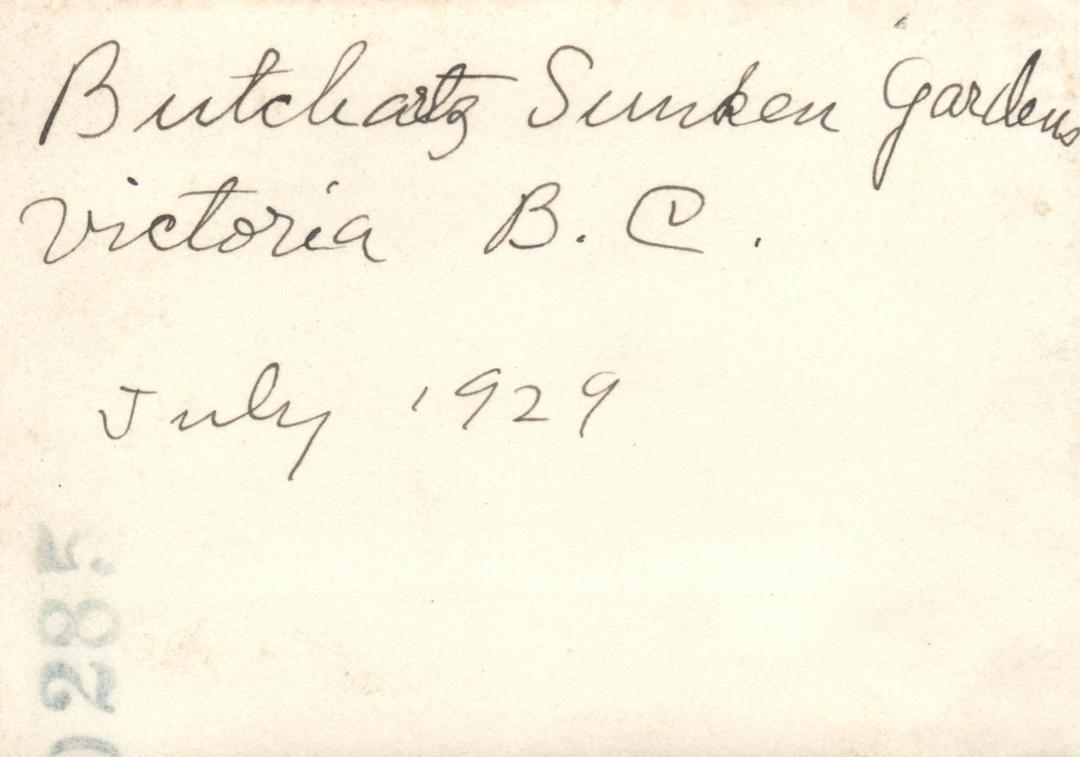 Butchartz Sunken Gardens
Victoria B. C.
July 1929
0285